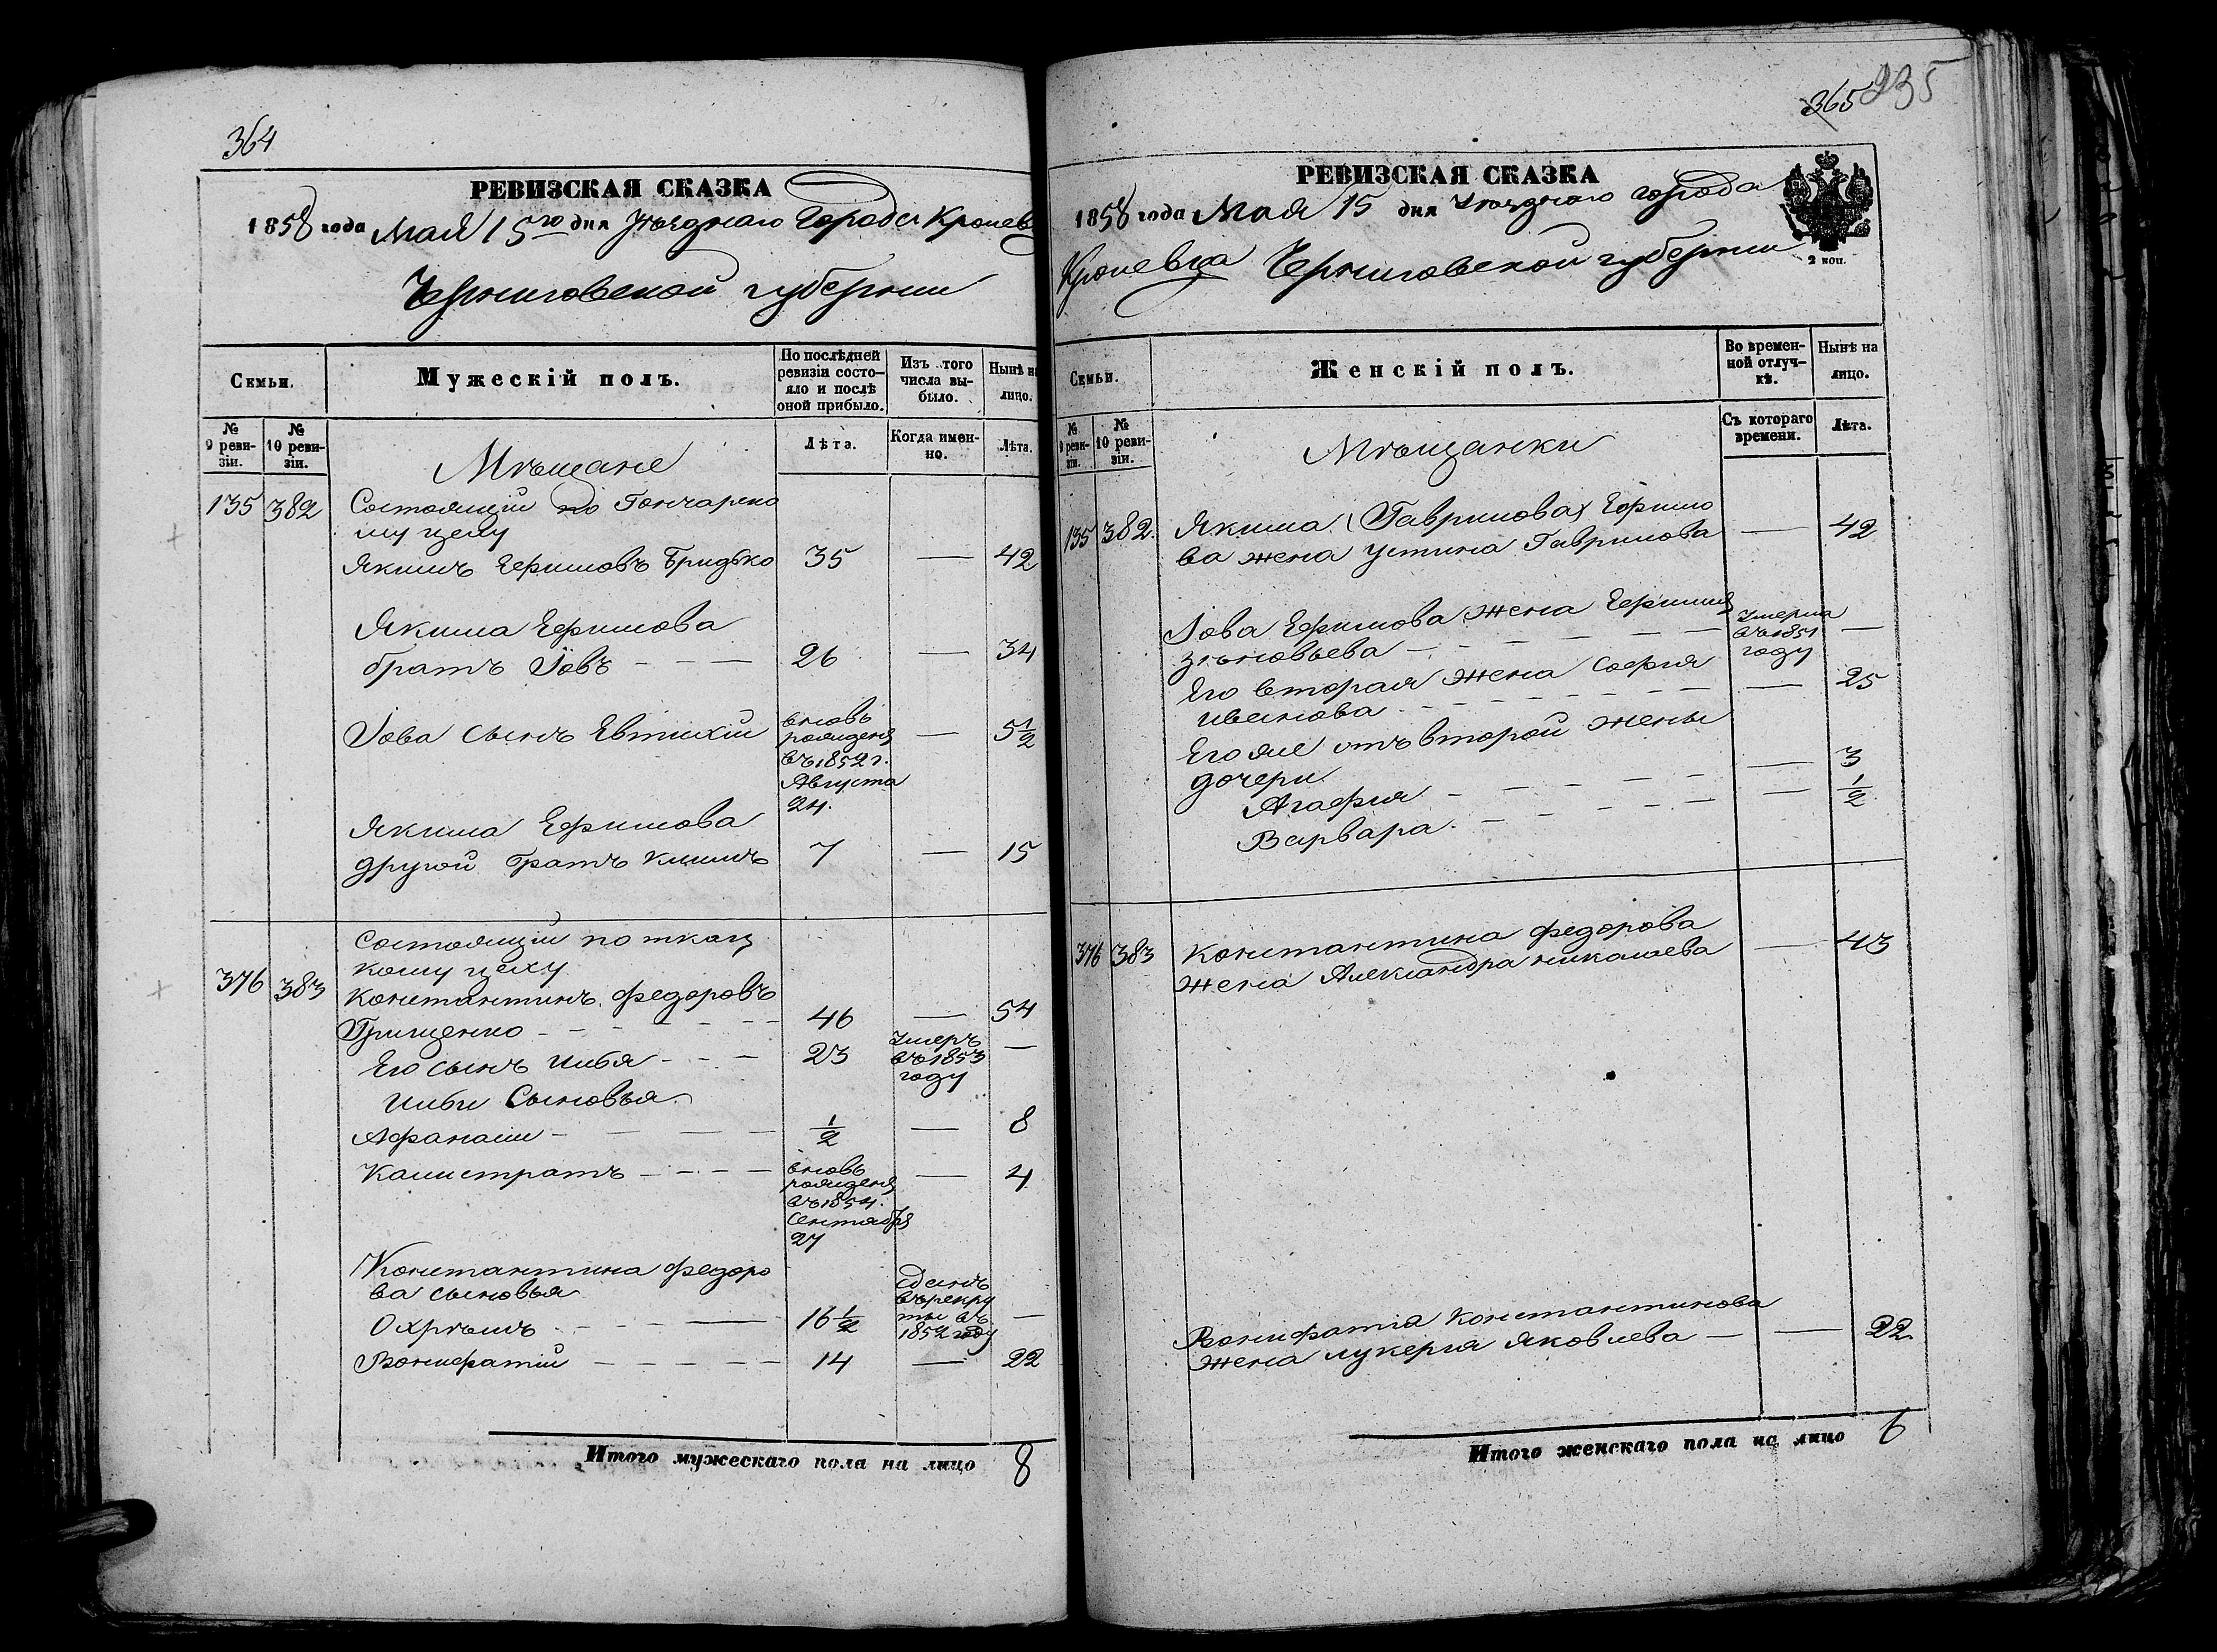 364
РЕВИЗСКАЯ СКАЗКА
1858 года Мая 15го дня Уѣзднаго Города Кролев
Черниговской губернии
Семьи.
Мужескій полъ.
По послѣдней ревизіи состояло и послѣ оной прибыло.
Изъ того числа выбыло.
Нынѣ на лицо.
№ 9 ревизіи.
№ 10 ревизіи.
Лѣта.
Когда именно.
Лѣта.
Мѣщане
135 382 Состоящій по Гончарно
му цеху
Якимъ Ефимовъ Бридько 35 — 42
Якима Ефимова
братъ Іовъ - - — 26 — 34
Іова сынъ Евтихий вновь рожденъ въ 1852 г. Августа 24. — 5 1/2
Якима Ефимова
другой братъ Климъ 7 — 15
376 383 Состоящій по ткац
кому цеху
Константинъ Федоровъ
Грищенко - - - - - - 46 — 54
Его сынъ Илья - - — 23 Умеръ въ 1853 году —
Ильи Сыновья
Афанасии - — — — 1/2 — 8
Калистратъ - - - — вновь рожденъ въ 1854. Сентября 27 — 4
Константина Федоро
ва сыновья
Охрѣмъ - - - — 16 1/2 сданъ въ рекруты въ 1852 году —
Вонифатій - - - - - 14 — 22
Итого мужескаго пола на лицо 8
365 235
РЕВИЗСКАЯ СКАЗКА
1858 года Мая 15 дня Уѣзднаго города
Кролевца Черниговской губернии
2 коп.
Семьи.
Женскій полъ.
Во временной отлучкѣ.
Нынѣ на лицо.
№ 9 ревизіи.
№ 10 ревизіи.
Съ котораго времени.
Лѣта.
Мѣщанки
135 382. Якима (Гаврилова) Ефимо
ва жена Устина Гаврилова — 42
Іова Ефимова жена
Зѣновьева - - - - - — Умерла въ 1851 году —
Его вторая жена София
Иванова - - - - - — — 25
Его же отъ второй жены
дочери
Агафия - - - - — 3
Варвара - - - - — — 1/2
376 383 Константина Федорова
жена Александра Николаева — 43
Вонифатія Константинова
жена Лукерия Яковлева — — 22.
Итого женскаго пола на лицо 6